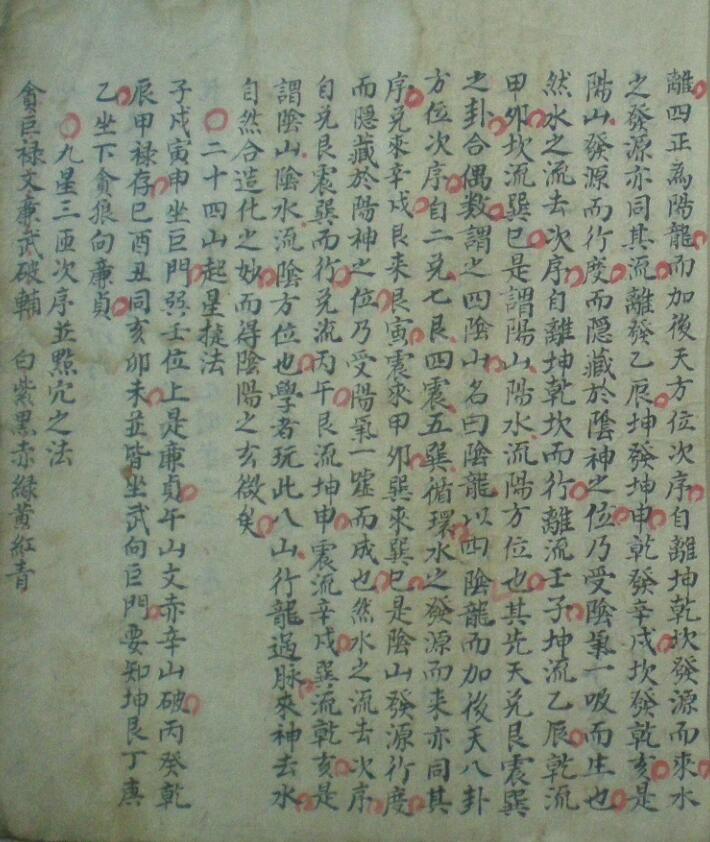 離四正為陽龍而加後天方位次序自離坤乾坎發源而來水
之發源亦同其流離發乙辰坤發坤申乾發辛戌坎發乾亥是
陽山發源而行度而隱藏於陰神之位乃受陰氣一吸而生也
然水之流去次序自離坤乾坎而行離流壬子坤流乙辰乾流
甲夘坎流巽巳是謂陽山陽水流陽方位也其先天兌艮震巽
之卦合偶数謂之四陰山名曰陰龍以四陰龍而加後天八卦
方位次序自二兌七艮四震五巽循環水之發源而来亦同其
序兌來辛戌艮来艮寅震來甲夘巽來巽巳是陰山發源行度
而隱藏於陽神之位乃受陽氣一噓而成也然水之流去次序
自兌艮震巽而行兌流丙午艮流坤申震流辛戌巽流乾亥是
謂陰山陰水流陰方位也學者玩此八山行龍過脉來神去水
自然合造化之妙而得陰陽之玄微矣
二十四山起星捷法
子戌寅申坐巨門巽壬位上是廉貞午山文赤辛山破丙癸乾
辰甲禄存巳酉丑同亥卯未並皆坐武向巨門要知坤艮丁庚
乙坐下貪狼向廉貞
九星三匝次序並點穴之法
貪巨禄文廉武破輔 白紫黑赤緑黄紅青